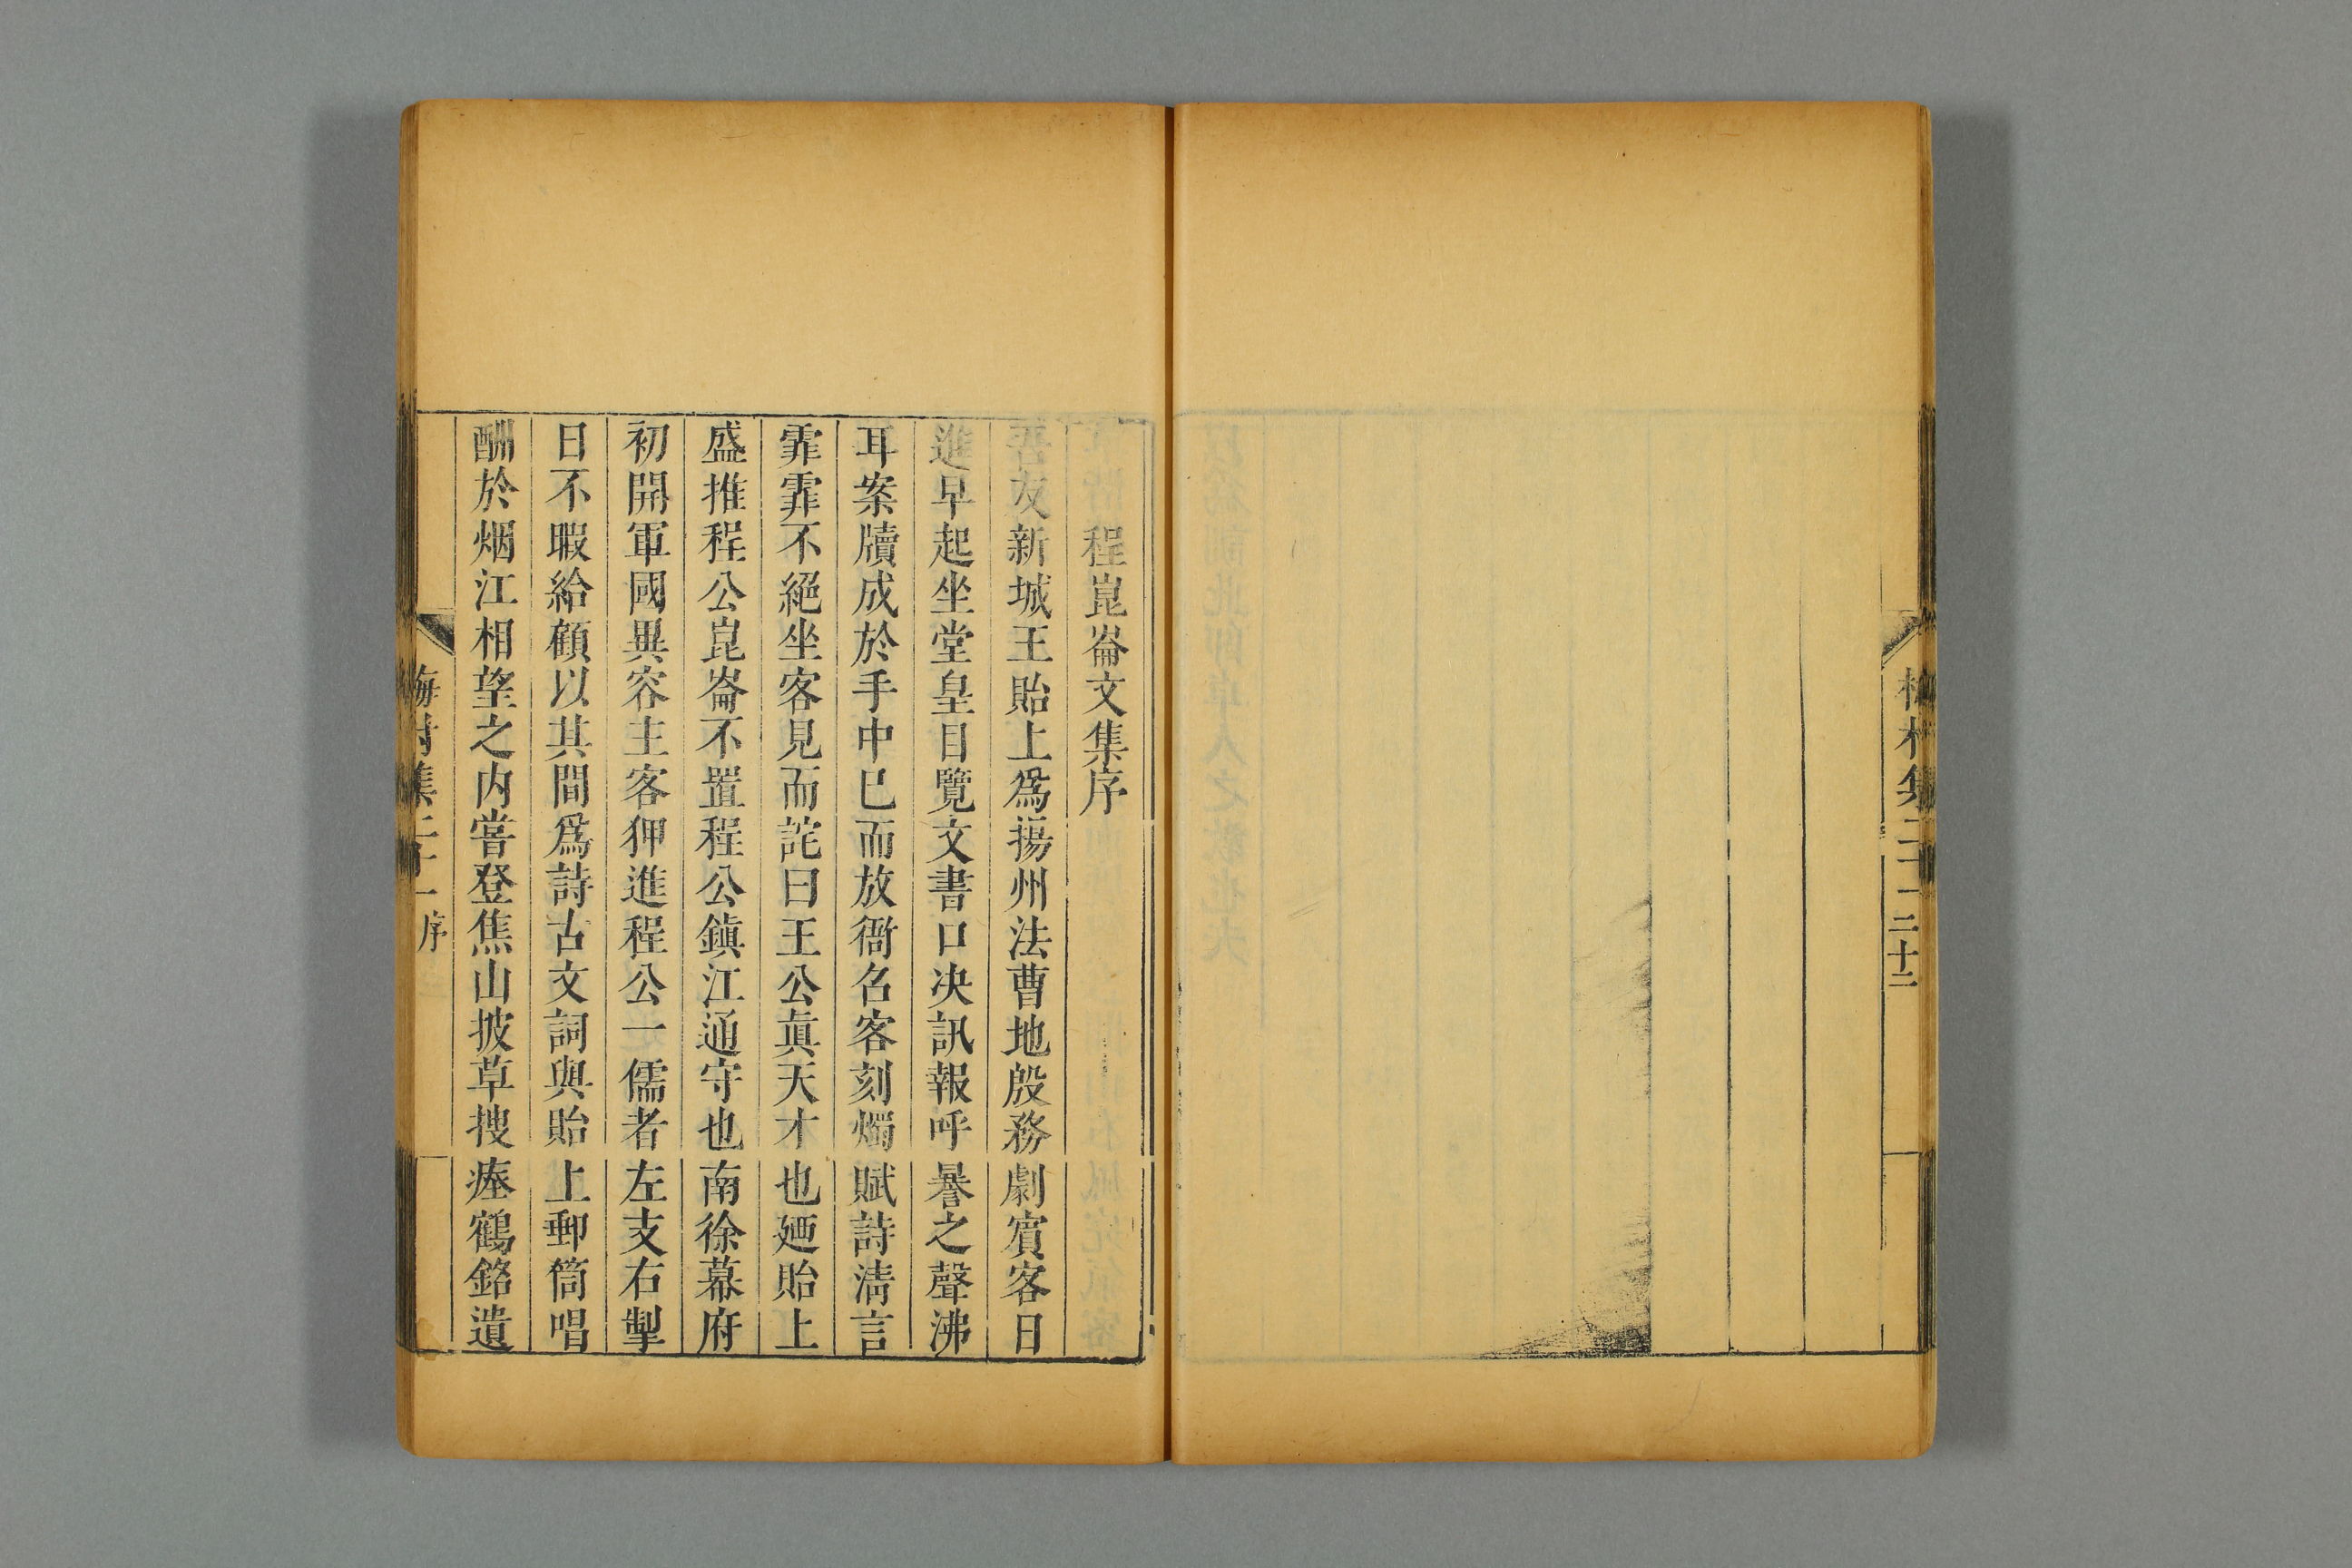 梅村集 二十二
程崑崙文集序
吾友新城王貽上爲揚州法曹地殷務劇賓客日
進早起坐堂皇目覽文書口决訊報呼謈之聲沸
耳案牘成於手中已而放衙名客刻燭賦詩清言
霏霏不絕坐客見而詫曰王公眞天才也廼貽上
盛推程公崑崙不置程公鎭江通守也南徐幕府
初開軍國異容主客狎進程公一儒者左支右掣
日不暇給顧以其間爲詩古文詞與貽上郵筒唱
酬於烟江相望之内嘗登焦山披草搜瘞鶴銘遺
梅村集二十一 序